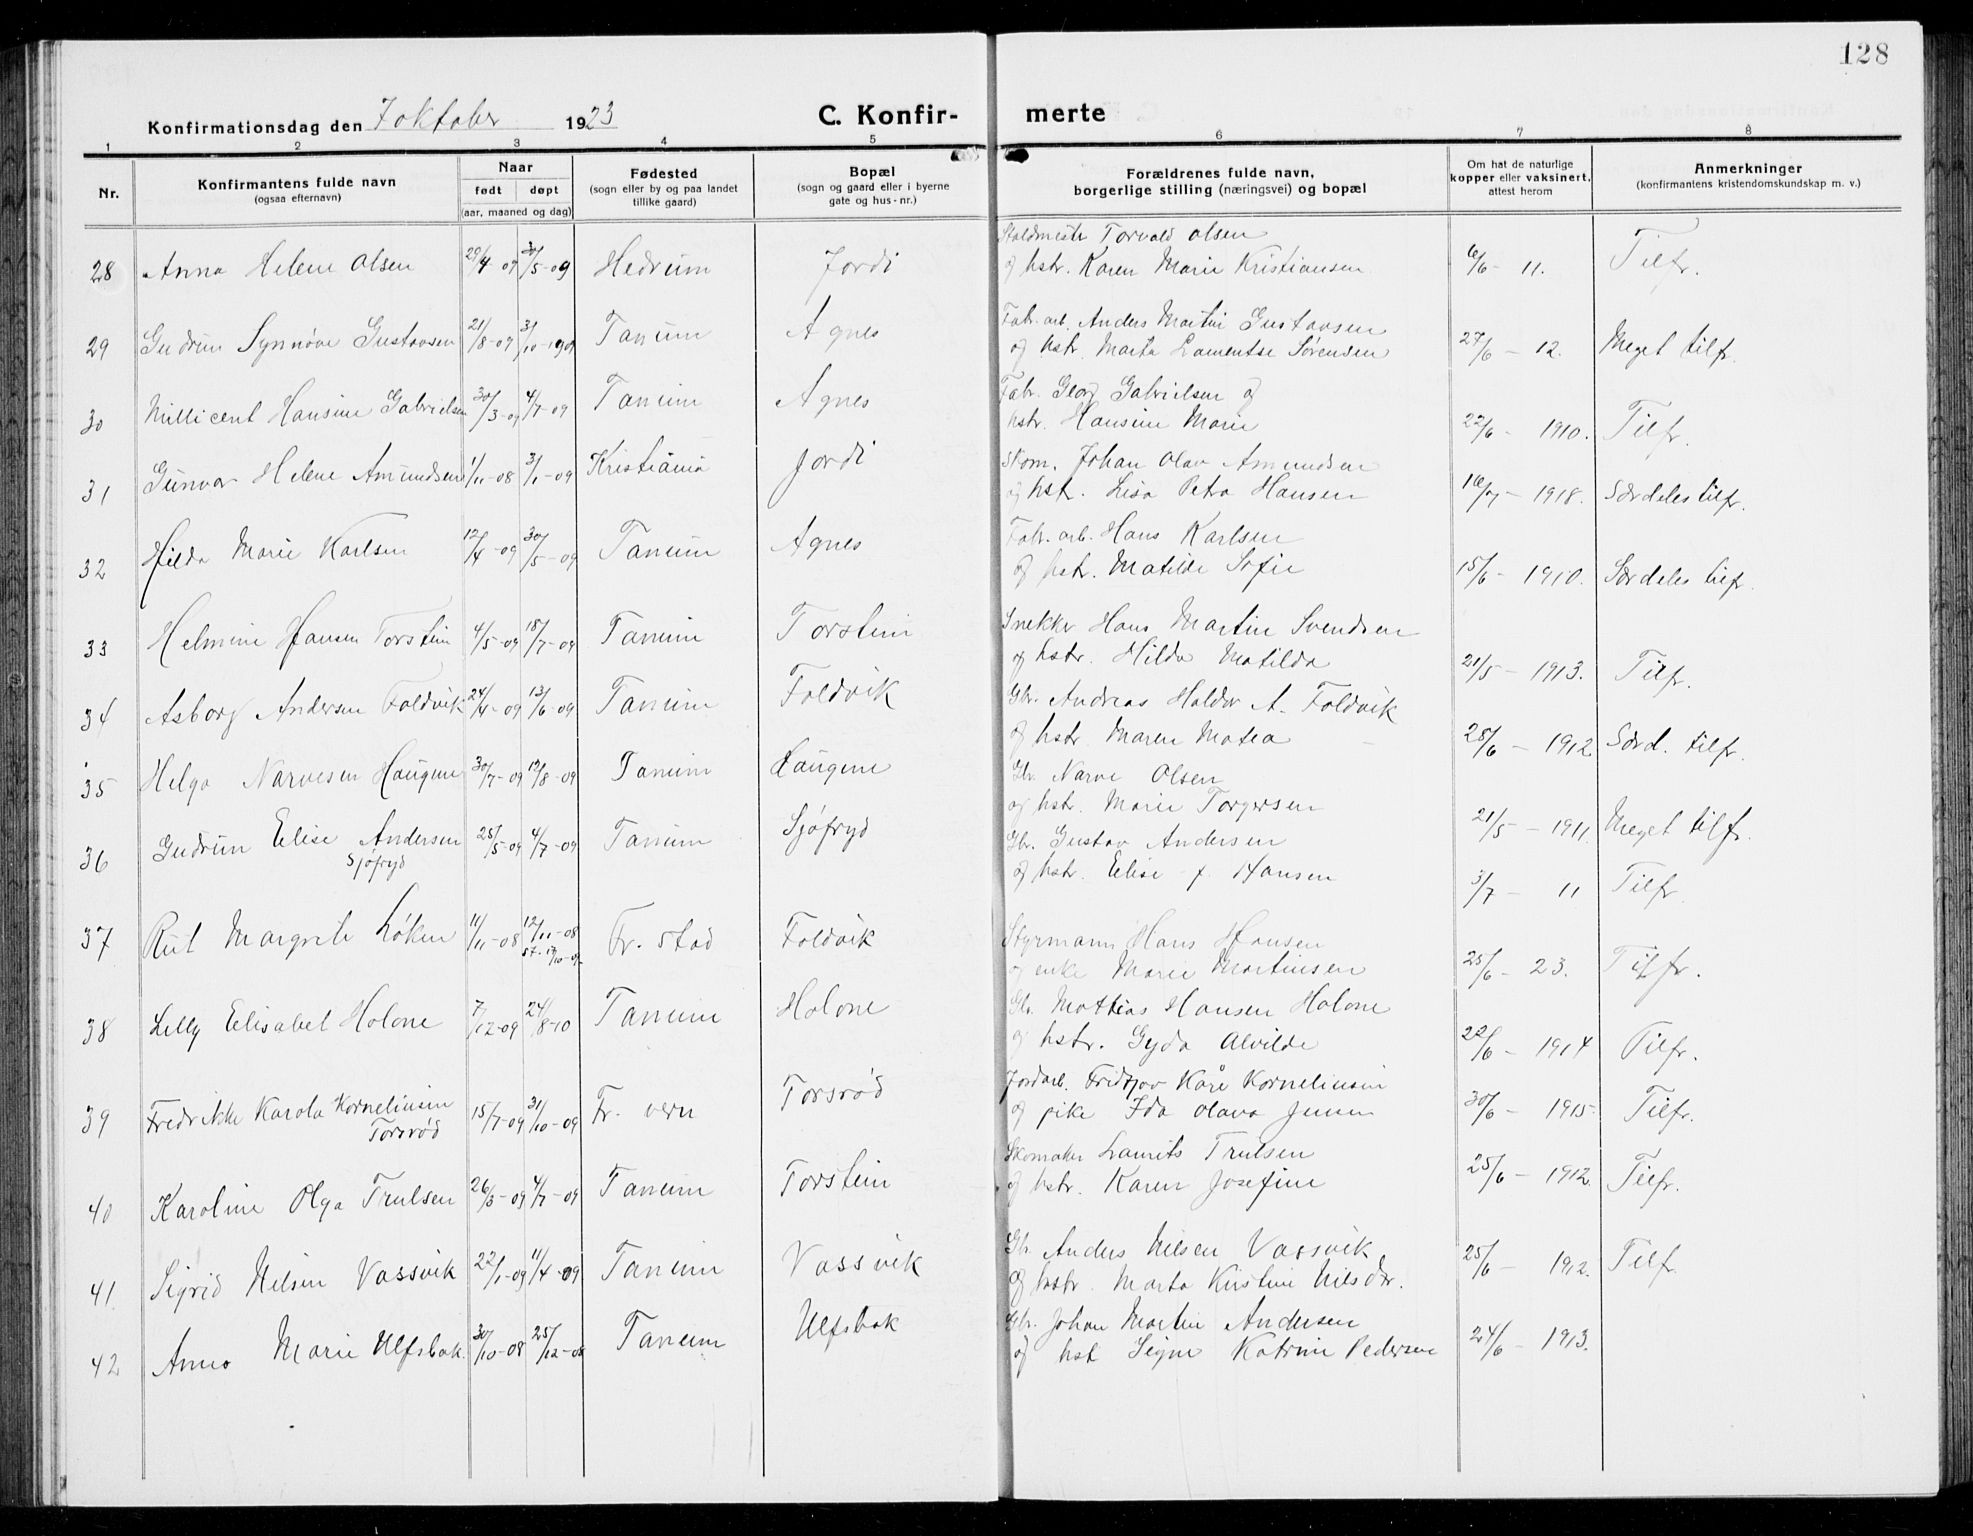 128
Konfirmationsdag den 7 oktober 1923 C. Konfirmerte
1 2 3 4 5 6 7 8
Nr. Konfirmantens fulde navn (ogsaa efternavn) Naar født døpt (aar, maaned og dag) Fødested (sogn eller by og paa landet tillike gaard) Bopæl (sogn og gaard eller i byerne gate og hus-nr.) Forældrenes fulde navn, borgerlige stilling (næringsvei) og bopæl Om hat de naturlige kopper eller vaksinert, attest herom Anmerkninger (konfirmantens kristendomskundskap m. v.)
Staldmester Torvald Olsen
28 Anna Helene Olsen 29/4-09 31/5-09 Hedrum Jordi og hstr. Karen Marie Kristiansen 6/6 - 11. Tilfr.
Fabr. arb. Anders Martin Gustavsen
29 Gudrun Synnøve Gustavsen 21/8-09 3/10-1909 Tanum Agnes og hstr. Marta Lamentse Sørensen 27/6 - 12. Meget tilfr.
Fabr. Georg Gabrielsen og
30 Millicent Hansine Gabrielsen 30/3-09 4/7-09 Tanum Agnes hstr. Hansine Marie 22/6 - 1910. Tilfr.
Skom. Johan Olav Amundsen
31 Gunvor Helene Amundsen 1/11-08 3/1-09 Kristiania Jordi og hst. Lisa Petra Hansen 16/7 - 1918. Særdeles tilfr.
Fabr. arb. Hans Karlsen
32 Hilda Marie Karlsen 12/4-09 30/5-09 Tanum Agnes og hstr. Matilde Sofie 15/6 - 1910. Særdeles tilfr.
Snekker Hans Martin Svendsen
33 Helmine Hansen Torstein 4/5-09 18/7-09 Tanum Torstein og hstr. Hilda Matilda 21/5 - 1913. Tilfr.
Gbr. Andreas Haldor A. Foldvik
34 Asborg Andersen Foldvik 24/4-09 13/6-09 Tanum Foldvik og hstr. Maren Matea 28/6 - 1912 Særd. tilfr.
Gbr. Narve Olsen
35 Helga Narvesen Haugene 30/7-09 12/8-09 Tanum Haugene og hstr. Marie Torgersen 21/5 - 1911. Meget tilfr.
Gbr. Gustav Andersen
36 Gudrun Elise Andersen Sjøfryd 25/5-09 4/7-09 Tanum Sjøfryd og hstr. Elise f. Hansen 3/7 - 11 Tilfr.
Styrmann Hans Hansen
37 Rut Margrete Løken 11/11-08 12/11-08 Fr. stad Foldvik og enke Marie Martinsen 25/6 - 23. Tilfr.
Gbr. Mathias Hansen Holone
38 Lilly Elisabet Holone 7/12-09 24/8-10 Tanum Holone og hstr. Gyda Alvilde 22/6 - 1914 Tilfr.
Jordarb. Fridtjov Kåre Korneliusen
39 Fredrikke Karola Korneliusen Torsrød 15/7-09 31/10-09 Fr. vern Torsrød og pike Ida Olava Jensen 30/6 - 1915 Tilfr.
Skomaker Laurits Trulsen
40 Karoline Olga Trulsen 26/3-09 4/7-09 Tanum Torstein og hstr. Karen Josefine 25/6 - 1912. Tilfr.
Gbr. Anders Nilsen Vassvik
41. Sigrid Nilsen Vassvik 22/1-09 11/4-09 Tanum Vassvik og hustr. Marta Kristine Nilsdtr. 25/6 - 1912. Tilfr.
Gbr. Johan Martin Andersen
42 Anna Marie Ulfsbak. 30/10-08 25/12-08 Tanum Ulfsbak og hst Signe Katrine Pedersen 24/6 - 1913.